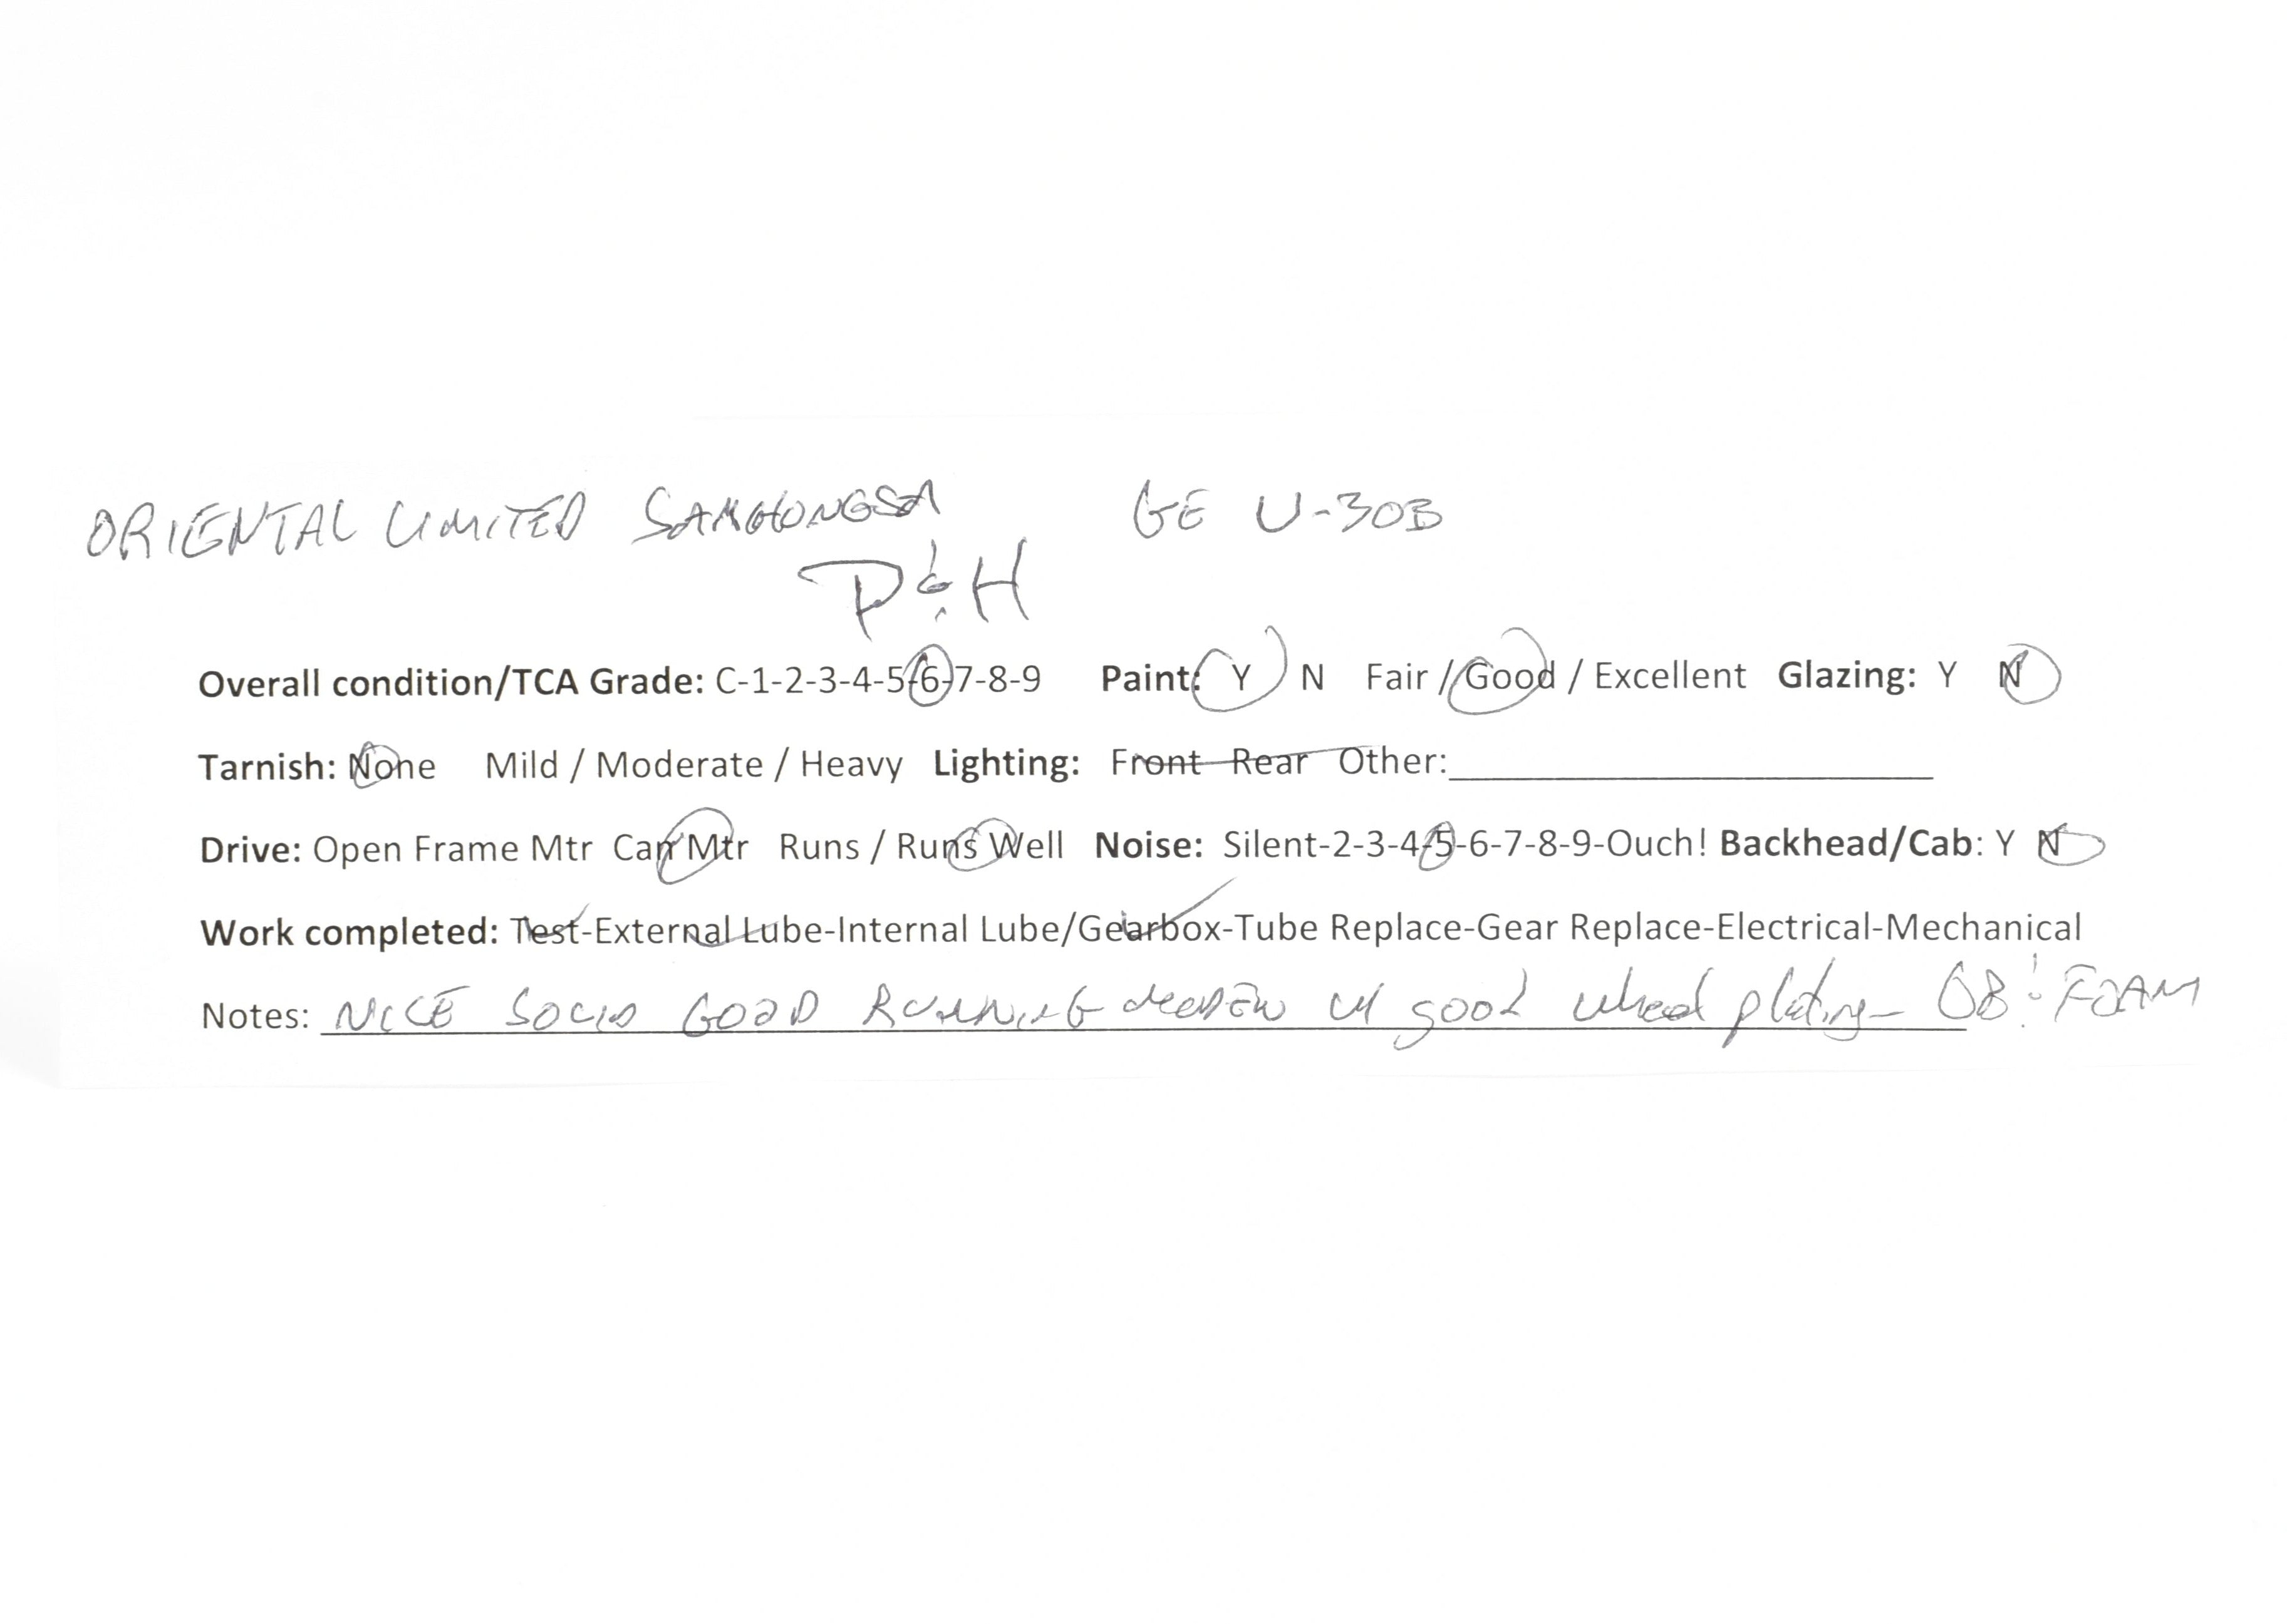 ORIENTAL LIMITED SAMHONGSA GE U-30B
P&H
Overall condition/TCA Grade: C-1-2-3-4-5-6-7-8-9 Paint: Y N Fair / Good / Excellent Glazing: Y N
Tarnish: None Mild / Moderate / Heavy Lighting: Front Rear Other:
Drive: Open Frame Mtr Can Mtr Runs / Runs Well Noise: Silent-2-3-4-5-6-7-8-9-Ouch! Backhead/Cab: Y N
Work completed: Test-External Lube-Internal Lube/Gearbox-Tube Replace-Gear Replace-Electrical-Mechanical
Notes: NICE GOOD RUNNING w/ good wheel plating- OB & FOAM